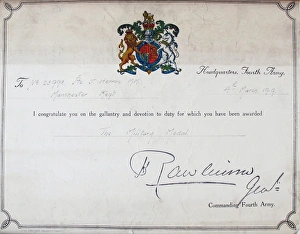 Headquarters Fourth Army.
To
Manchester Regt
4th March 1919
I congratulate you on the gallantry and devotion to duty for which you have been awarded
The Military Medal
H Rawlinson
Genl.
Commanding Fourth Army.